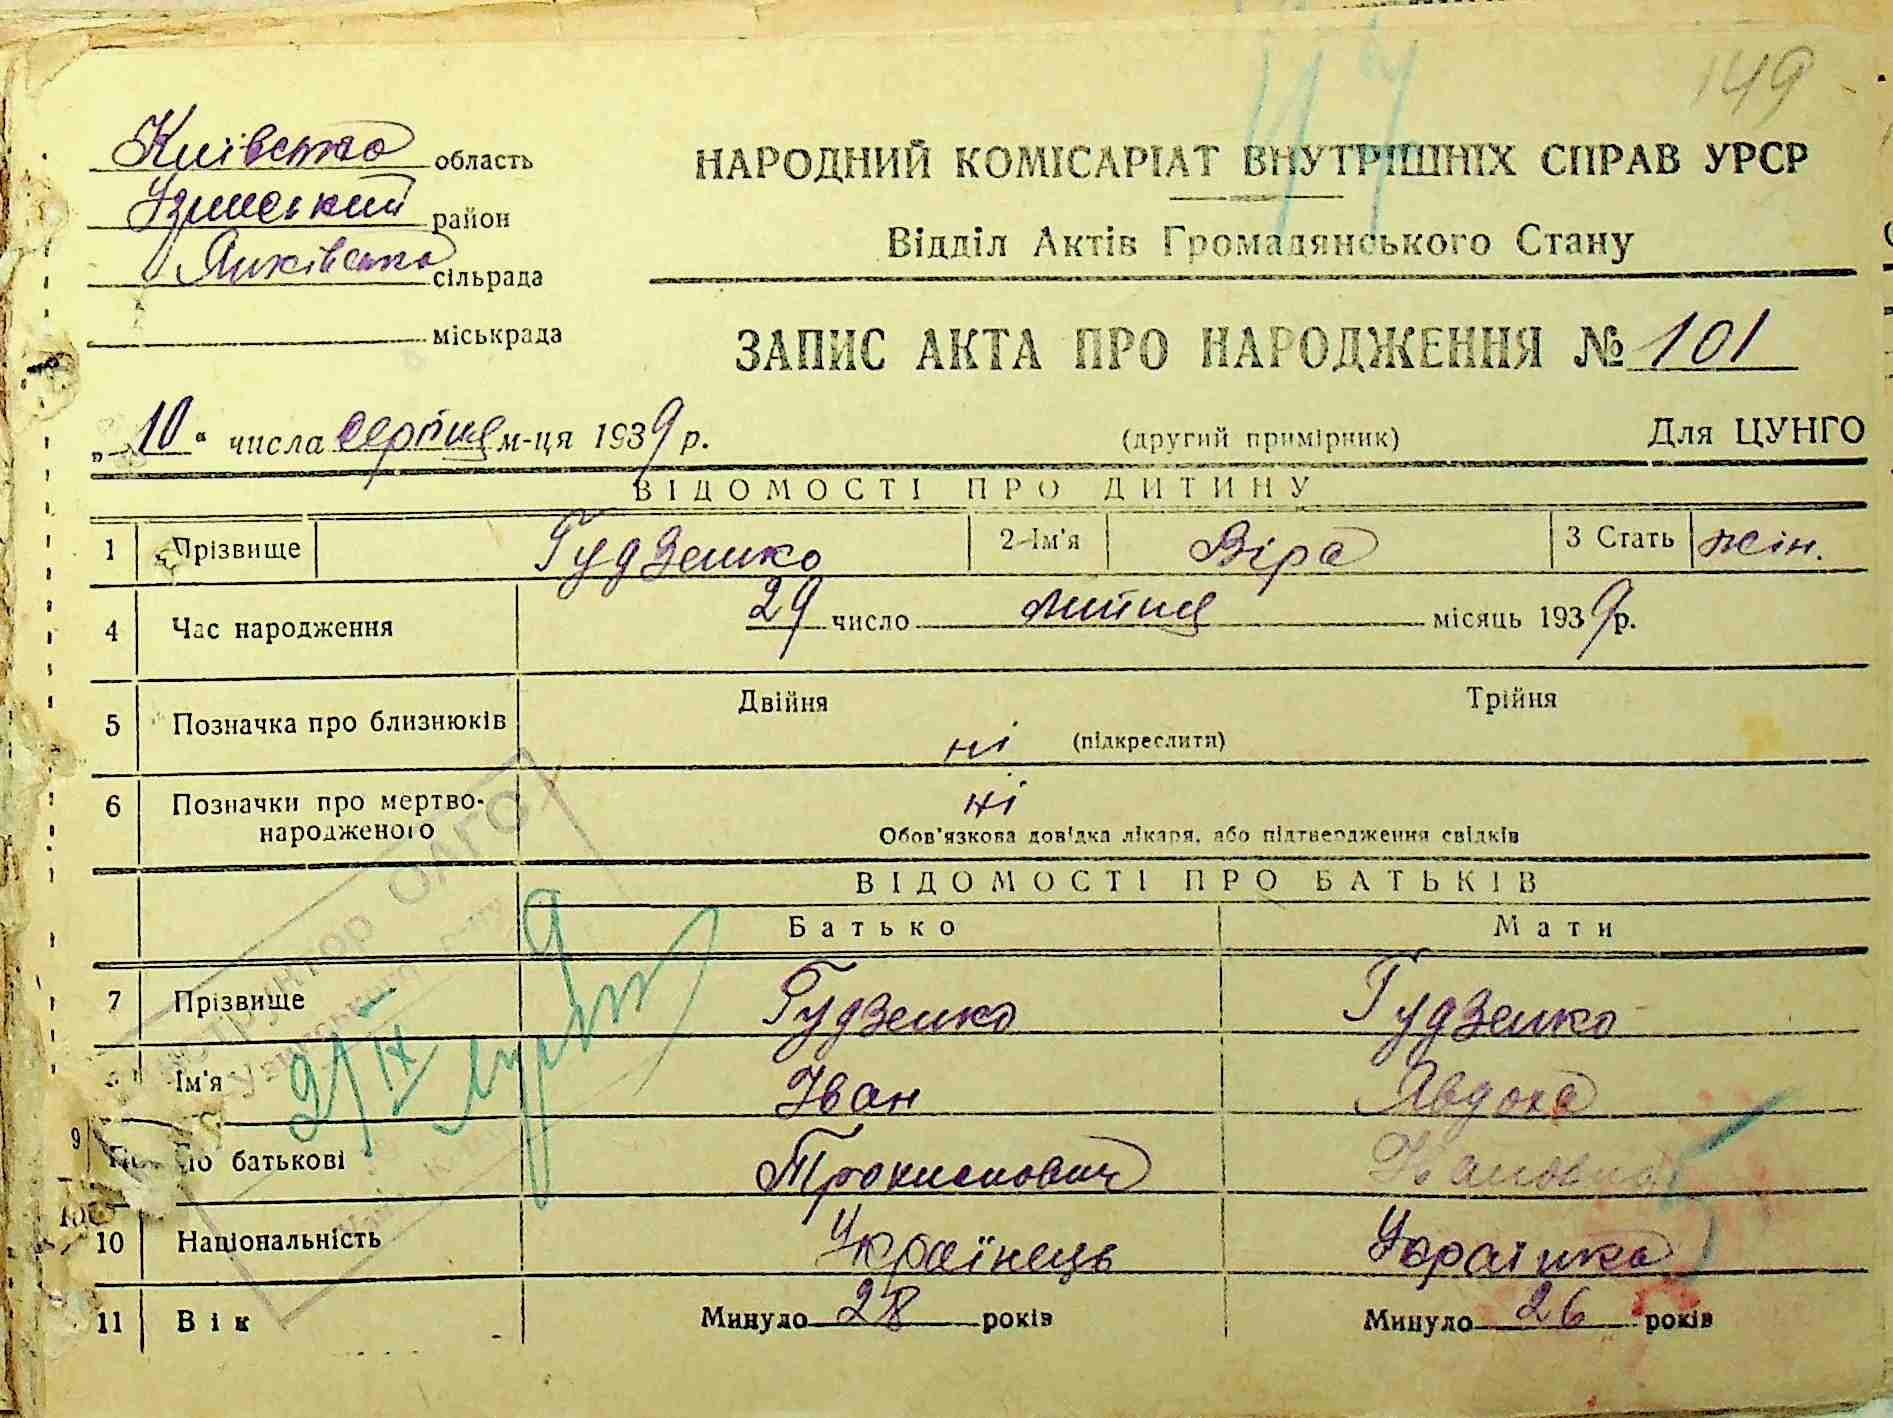 149
Київська область
Узинський район
Янківська сільрада
міськрада
НАРОДНИЙ КОМІСАРІАТ ВНУТРІШНІХ СПРАВ УРСР
Відділ Актів Громадянського Стану
ЗАПИС АКТА ПРО НАРОДЖЕННЯ № 101
„10“ числа серпня м-ця 1939 р. (другий примірник) Для ЦУНГО
ВІДОМОСТІ ПРО ДИТИНУ
1 Прізвище Гудзенко 2 Ім'я Віра 3 Стать жін.
4 Час народження 29 число липня місяць 1939 р.
5 Позначка про близнюків Двійня Трійня
ні (підкреслити)
6 Позначки про мертво- ні
народженого Обов'язкова довідка лікаря, або підтвердження свідків
ВІДОМОСТІ ПРО БАТЬКІВ
Батько Мати
7 Прізвище Гудзенко Гудзенко
Ім'я Іван Явдоха
9 По батькові
10 Національність Українець Українка
11 Вік Минуло 28 років Минуло 26 років